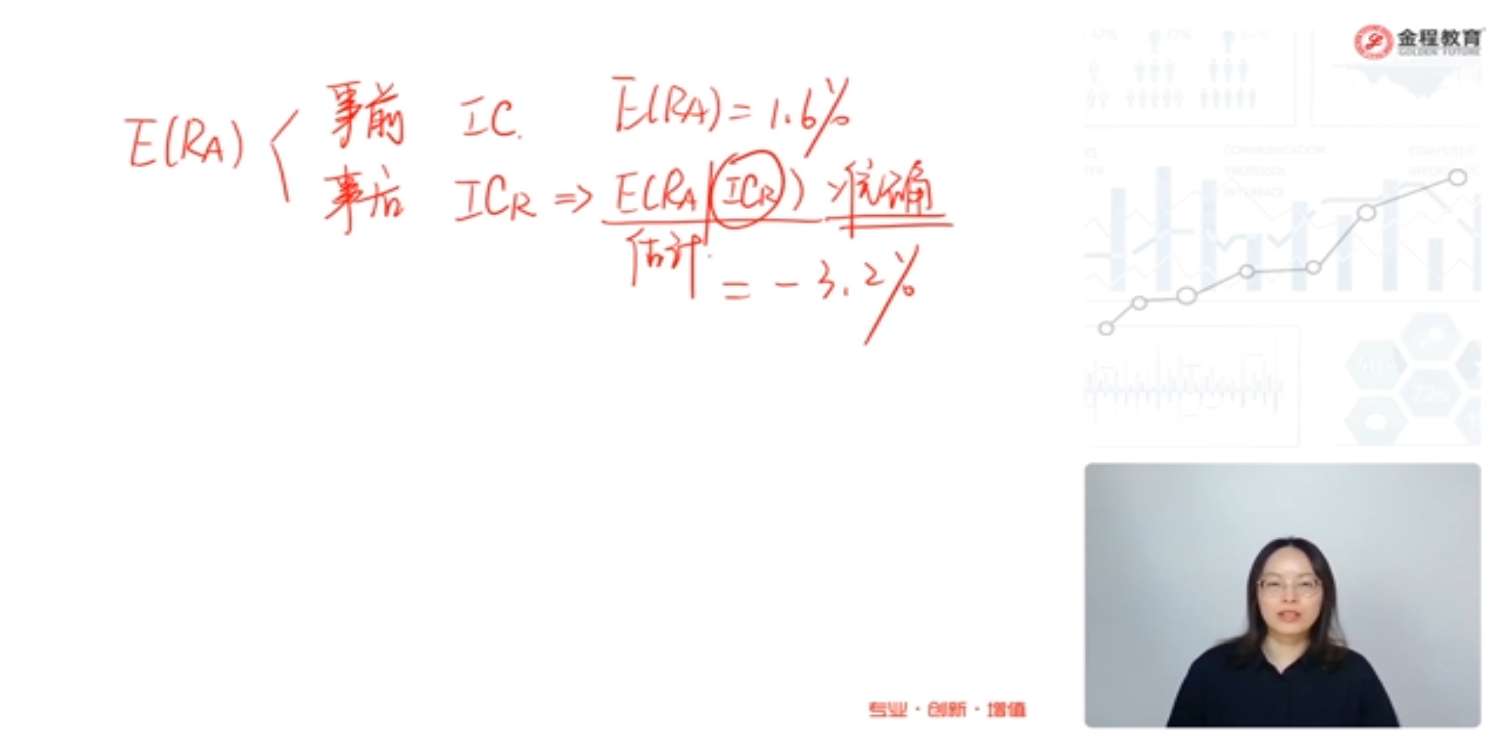 金程教育
GOLDEN FUTURE
E(RA)
事前 IC. E(RA) = 1.6%
事后 ICR ⇒ E(RA|ICR)
准确
估计.
= -3.2%
COMMUNICATION
专业·创新·增值